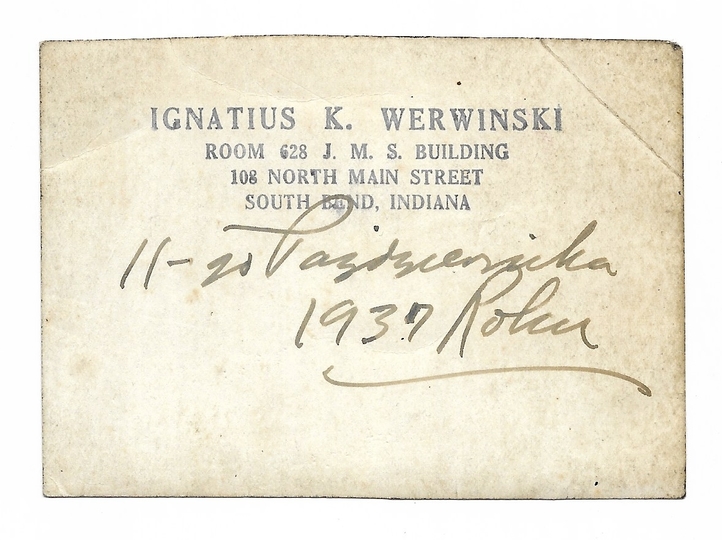 IGNATIUS K. WERWINSKI
ROOM 628 J. M. S. BUILDING
108 NORTH MAIN STREET
SOUTH BEND, INDIANA
11-go Października
1937 Roku